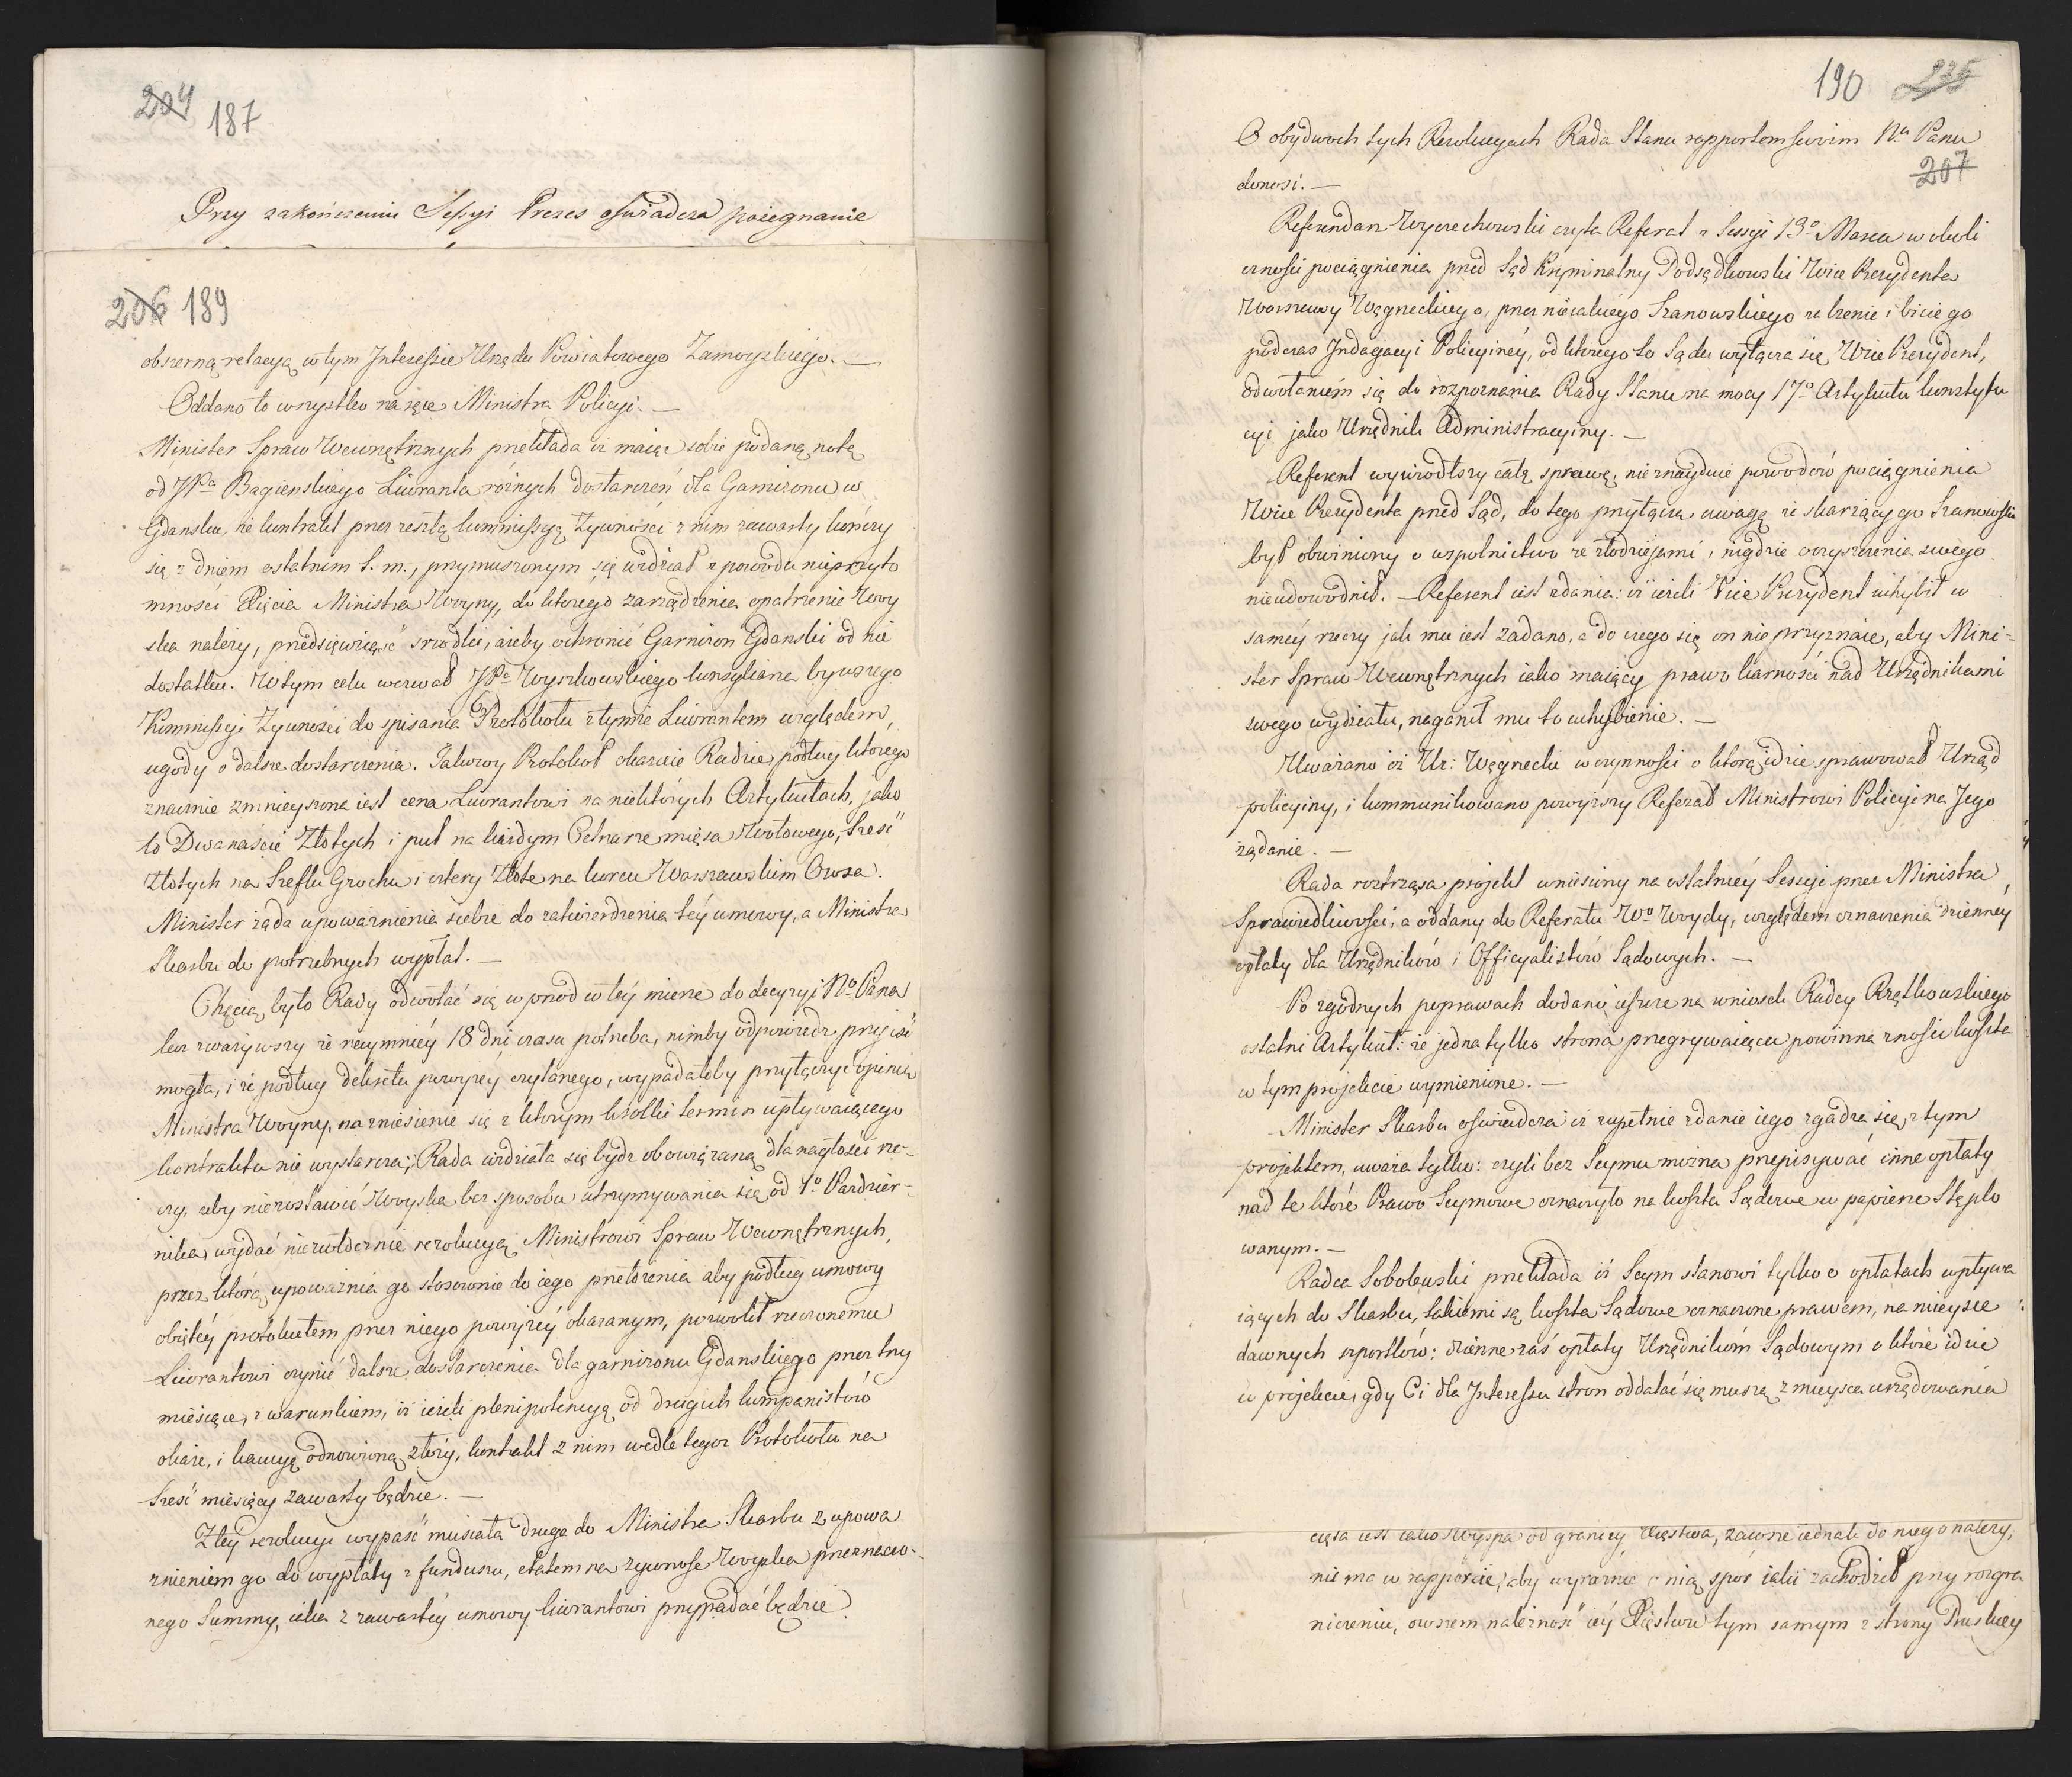 204 187
Przy zakończeniu Sessyi Prezes oświadcza pożegnanie
206 189
obszerną relacyą w tym Interessie Urzędu Powiatowego Zamoyskiego. —
Oddano to wszystko na ręce Ministra Policyi. —
Minister Spraw Wewnętrznych przekłada iż maiąc sobie podaną notę
od JPa Bagienskiego Liwranta różnych dostarczeń dla Garnizonu w
Gdansku, że kontrakt przez resztę kommissyą Żywności z nim zawarty kończy
się z dniem ostatnim t. m., przymuszonym się widział z powodu nieprzyto
mności Xięcia Ministra Woyny, do którego zarządzenia opatrzenie Woy
ska należy, przedsięwziąść srzodki, ażeby ochronić Garnizon Gdanski od nie
dostatku. W tym celu wezwał JPa Wyszkowskiego konsyliarza bywszego
Kommissyi Żywności do spisania Protokołu z tymże Liwrantem względem
ugody o dalsze dostarczenia. Takowy Protokoł okazuie Radzie, podług którego
znacznie zmnieyszona iest cena Liwrantowi na niektórych Artykułach, jako
to Dwanaście Złotych i puł na każdym Cetnarze mięsa Wołowego, Sześć
Złotych na Szeflu Grochu i cztery Złote na korcu Warszawskim Owsa.
Minister żąda upoważnienia siebie do zatwierdzenia tey umowy, a Ministra
Skarbu do potrzebnych wypłat. —
Chęcią było Rady odwołać się w przod w tey mierze do decyzyi No Pana
lecz zważywszy że naymniéy 18 dni czasu potrzeba, nimby odpowiedź przyjść
mogła, i że podług dekretu powyżey czytanego, wypadałoby przyłączyć opinią
Ministra Woyny, na zniesienie się z którym krótki termin upływaiącego
kontraktu nie wystarcza; Rada widziała się bydź obowiązaną dla nagłości rze-
czy, aby niezostawić Woyska bez sposobu utrzymywania się od 1o Paździer-
nika, wydać niezwłocznie rezolucyą Ministrowi Spraw Wewnętrznych,
przez którą upoważnia go stosownie do iego przełożenia aby podług umowy
obiętey protokułem przez niego powyżey okazanym, pozwolił rzeczonemu
Liwrantowi czynić dalsze dostarczenia dla garnizonu Gdanskiego przez trzy
miesiące, z warunkiem, iż ieżeli plenipotencyą od drugich kompanistów
okaże, i kaucyą odnowioną złoży, kontrakt z nim wedle tegoż Protokołu na
sześć miesięcy zawarty będzie. —
Z tey rezolucyi wypaść musiała druga do Ministra Skarbu z upowa
żnieniem go do wypłaty z funduszu, etatem na żywność Woyska przeznaczo-
nego Summy, iaka z zawartéy umowy liwrantowi przypadać będzie.
190 235
O obydwoch tych Rezolucyach Rada Stanu rapportem swoim Na Panu
207
donosi. —
Referendarz Wyczechowski czyta Referat z Sessyi 13o Marca w okoli
czności pociągnienia przed Sąd Kryminalny Podsędkowski Wice Prezydenta
Warszawy Węgrzeckiego, przez niejakiego Szanowskiego za łżenie i bicie go
podczas Indagacyi Policyiney, od którego to Sądu wyłącza się Wice Prezydent,
odwołaniem się do rozpoznania Rady Stanu na mocy 17o Artykułu konstytu
cyi jako Urzędnik Administracyiny. —
Referent wywiodłszy całą sprawę, nieznayduie powodów pociągnienia
Wice Prezydenta przed Sąd, do tego przyłącza uwagę że skarżący go Szanowski
był obwiniony o wspolnictwo ze złodziejami, i nigdzie oczyszczenia swego
nieudowodnił. — Referent iest zdania: iż ieżeli Vice Prezydent uchybił w
saméy rzeczy jak mu iest zadano, a do czego się on nie przyznaie, aby Mini-
ster Spraw Wewnętrznych iako maiący prawo karności nad Urzędnikami
swego wydziału, naganił mu to uchybienie. —
Uważano iż Ur: Węgrzecki w czynności o którą idzie sprawował Urząd
policyiny, i kommunikowano powyższy Referat Ministrowi Policyi na Jego
żądanie. —
Rada roztrząsa projekt wniesiony na ostatniéy Sessyi przez Ministra
Sprawiedliwości, a oddany do Referatu Wo Woydy, względem oznaczenia dzienney
opłaty dla Urzędników i Officyalistów Sądowych. —
Po zgodnych poprawach dodano ieszcze na wniosek Radcy Rzętkowskiego
ostatni Artykuł: że jedna tylko strona przegrywaiąca powinna znosić koszta
w tym projekcie wymienione. —
Minister Skarbu oświadcza iż zupełnie zdanie iego zgadza się z tym
projektem, uważa tylko: czyli bez Seymu można przepisywać inne opłaty
nad te które Prawo Seymowe oznaczyło na koszta Sądowe w papierze Stęplo
wanym. —
Radca Sobolewski przekłada iż Seym stanowi tylko o opłatach wpływa
iących do Skarbu, takiemi są koszta Sądowe oznaczone prawem, na mieysce
dawnych szportlów: dzienne zaś opłaty Urzędnikom Sądowym o które idzie
w projekcie, gdy Ci dla Interessu stron oddalać się muszą z mieysca urzędowania
cięta iest iako Wyspa od granicy Xięstwa, zawsze iednak do niego należy,
nie ma w rapporcie, aby wyraźnie o nią spór iaki zachodził przy rozgra
niczeniu, owszem należność iéy Xięstwu tym samym z strony Pruskiey